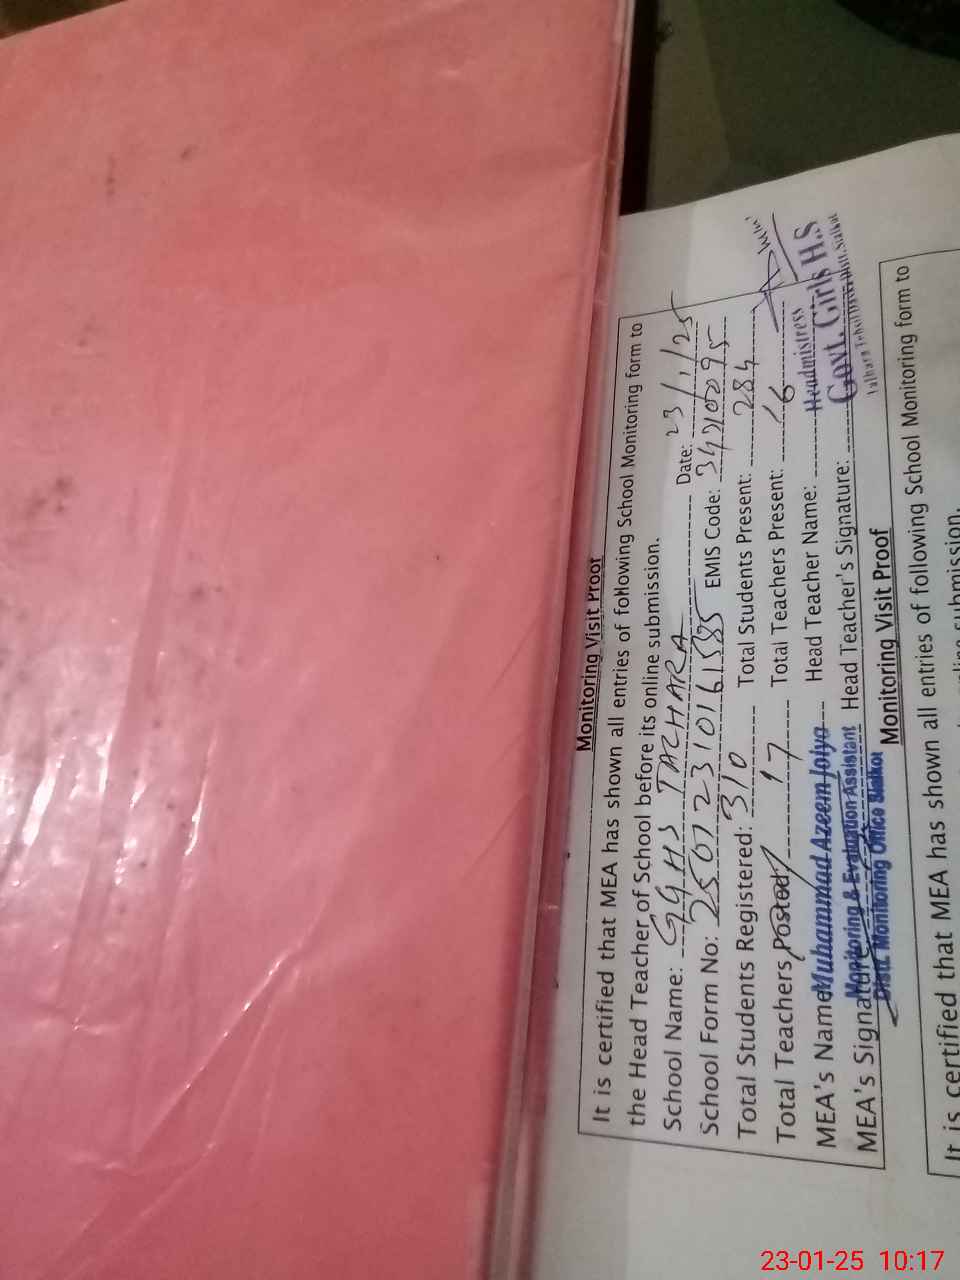 Monitoring Visit Proof
It is certified that MEA has shown all entries of following School Monitoring form to
the Head Teacher of School before its online submission.
School Name: GGHS TALHARA Date: 23/1/25
School Form No: EMIS Code:
Total Students Registered: 310 Total Students Present: 284
Total Teachers Posted: 17 Total Teachers Present: 16
MEA's Name Muhammad Azeem Joiya Head Teacher Name: Headmistress
MEA's Signature Monitoring & Evaluation Assistant Head Teacher's Signature: Govt. Girls H.S
Distt. Monitoring Office Sialkot Talhara Tehsil Distt. Sialkot
Monitoring Visit Proof
It is certified that MEA has shown all entries of following School Monitoring form to
online submission.
23-01-25 10:17